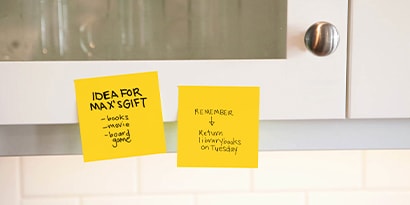 IDEA FOR
MAX'S GIFT
-books
-movie
-board
game
REMEMBER
↓
Return
library books
on Tuesday